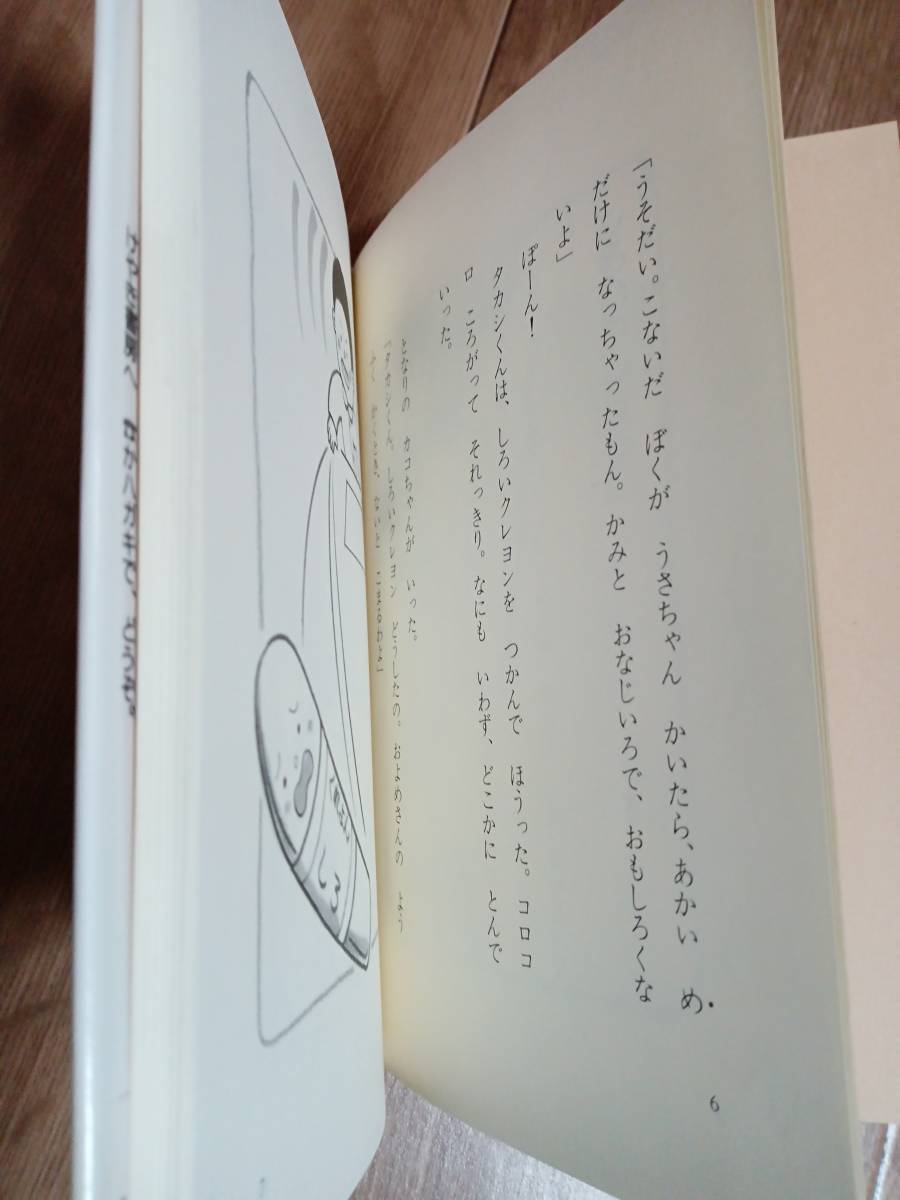 「うそだい。こないだ ぼくが うさちゃん かいたら、あかい め
だけに なっちゃったもん。かみと おなじいろで、おもしろくな
いよ」
ぽーん！
タカシくんは、しろいクレヨンを つかんで ほうった。コロコ
ロ ころがって それっきり。なにも いわず、どこかに とんで
いった。
となりの カコちゃんが いった。
「タカシくん、しろいクレヨン どうしたの。およめさんの よう
ふく かくとき、ないと こまるわよ」
6
しろ